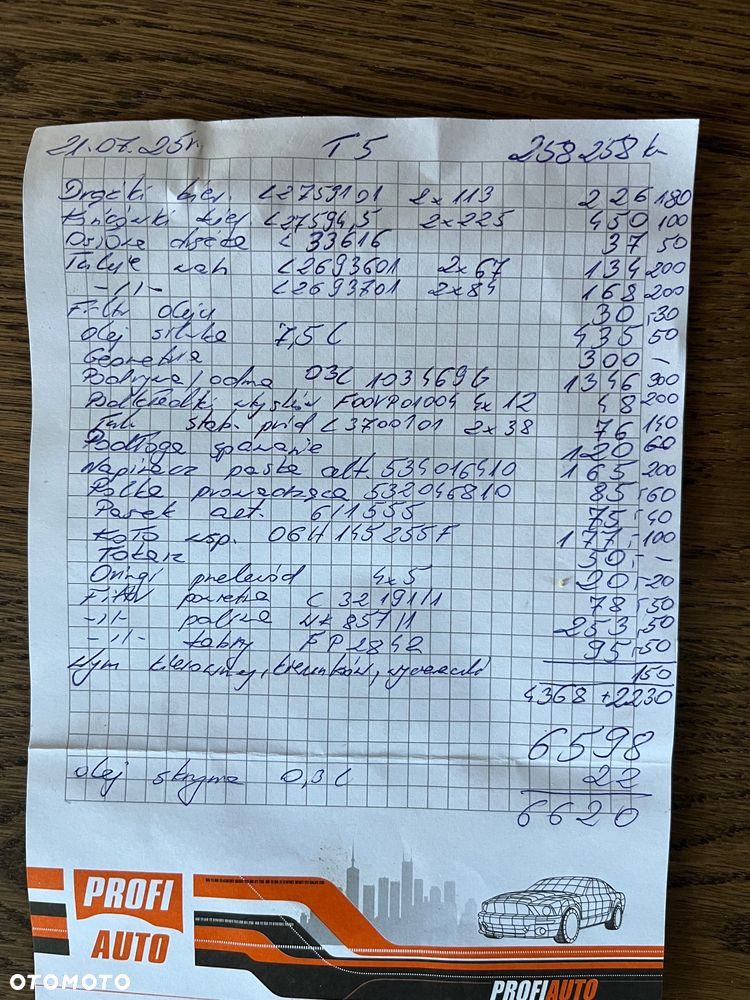 21.07.25r. T5 258 258 km
Drążki kier. L2759101 2x113 226 180
Końcówki kier L27594,5 2x225 450 100
Osłona drążka L 33616 37 50
Tuleje wah L2693601 2x67 134 200
-,,- L2693701 2x84 168 200
Filtr oleju 30,- 30
Olej silnika 7,5 L 435 50
Geometria 300 -
Podstawa/odma 03L 103469G 1346 300
Podkładki wtysków F00VP01004 4x12 48 200
stab. przód L3700101 2x38 76 140
Podłoga spawanie 120 60
Napinacz paska alt. 534016410 165 200
Rolka prowadząca 532046810 85,- 60
Pasek alt. 611555 75,- 40
Koło wsp. 06H 145 255 F 177,- 100
Tokarz 50,- -
Oringi przewód 4x5 20,- 20
Filtr powietrza C 32 191/1 78,- 50
-,,- paliwa WK 857/1 253,- 50
-,,- kabiny FP2842 95,- 50
Wym kierownicy, 150
4368 +2230
6598
olej skrzynia 0,3 L 22
6620
PROFI
AUTO
PROFIAUTO
OTOMOTO